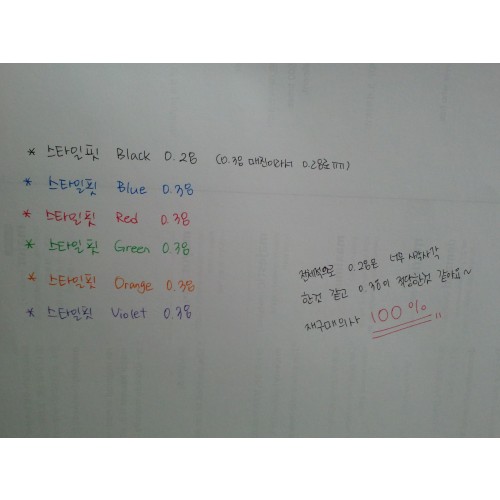 * 스타일핏 Black 0.28 (0.38 매진이라서 0.28로 ㅠㅠ)
* 스타일핏 Blue 0.38
* 스타일핏 Red 0.38
* 스타일핏 Green 0.38
* 스타일핏 Orange 0.38
* 스타일핏 Violet 0.38
전체적으로 0.28은 너무 사각사각
한것 같고 0.38이 적당한것 같아요~
재구매의사 100%"